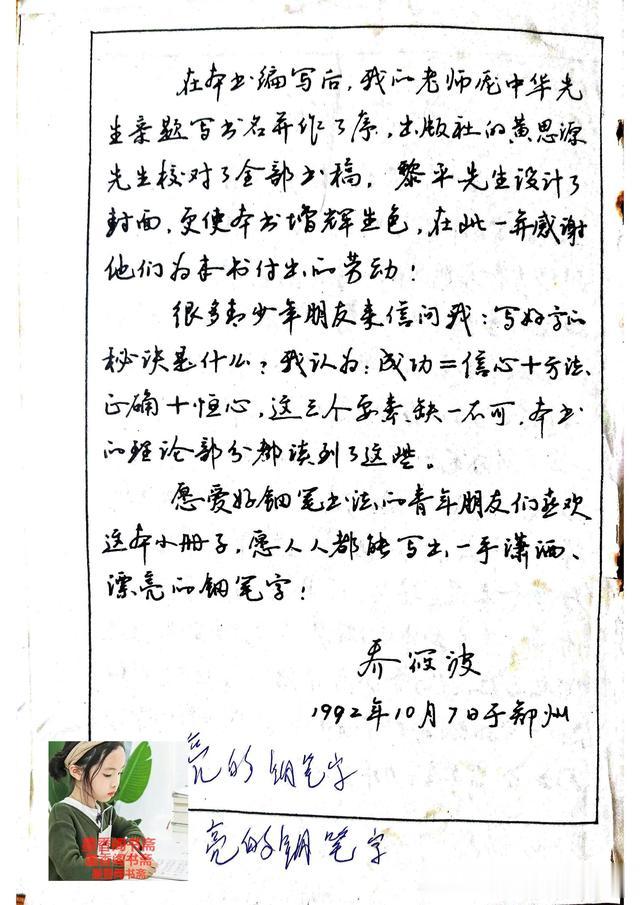 在本书编写后，我的老师庞中华先
生亲题写书名并作了序，出版社的黄思源
先生校对了全部书稿，黎平先生设计了
封面，更使本书增辉生色，在此一并感谢
他们为本书付出的劳动！
很多青少年朋友来信问我：写好字的
秘诀是什么？我认为：成功＝信心＋方法
正确＋恒心，这三个要素缺一不可，本书
的理论部分都谈到了这些。
愿爱好钢笔书法的青年朋友们喜欢
这本小册子，愿人人都能写出一手潇洒、
漂亮的钢笔字！
乔筱波
1992年10月7日于郑州
亮的钢笔字
亮的钢笔字
墨香阁书斋
墨香阁书斋
墨香阁书斋